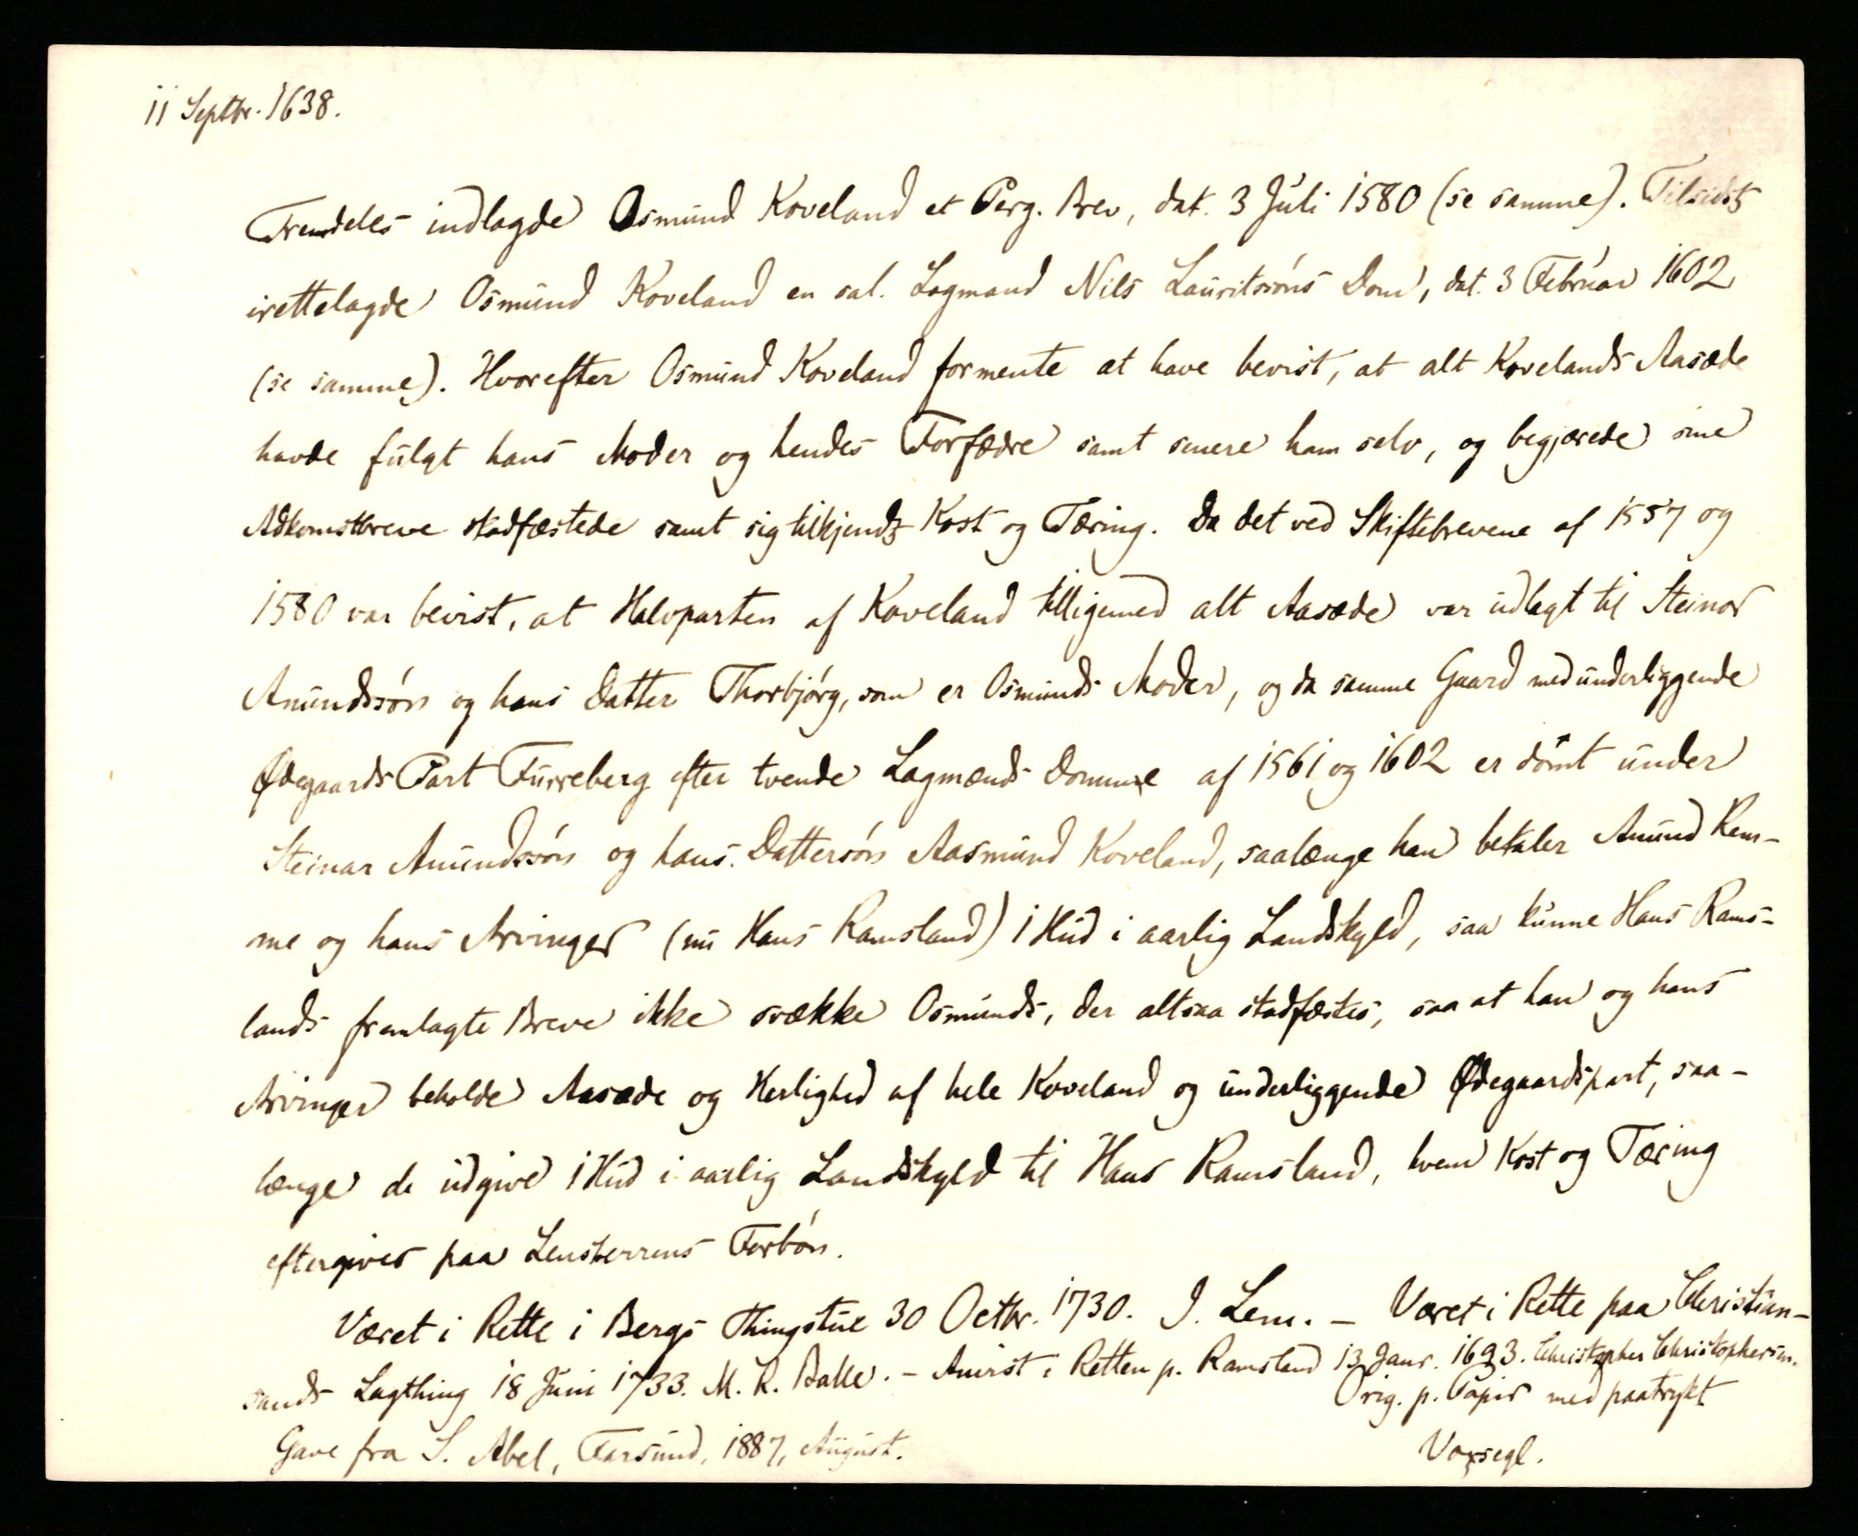 11 Septbr. 1638.
Fremdeles indlagde Osmund Koveland et Perg. Brev, dat. 3 Juli 1580 (se samme). Tilsidst
irettelagde Osmund Koveland en sal. Lagmand Nils Lauritsöns Dom, dat. 3 Februar 1602
(se samme). Hvorefter Osmund Koveland formente at have bevist, at alt Kovelands Aasæde
havde fulgt hans Moder og hendes Forfædre samt senere ham selv, og begjærede sine
Adkomstbreve stadfæstede samt sig tilkjendt Kost og Tæring. Da det ved Skiftebrevene af 1557 og
1580 var bevist, at Halvparten af Koveland tilligemed alt Aasæde var udlagt til Steinar
Amundssön og hans Datter Thorbjörg, som er Osmunds Moder, og da samme Gaard med underliggende
Ødegaards Part Furreberg efter tvende Lagmænds Domme af 1561 og 1602 er dömt under
Steinar Amundssön og hans Dattersön Aasmund Koveland, saalænge han betaler Amund Rem-
me og hans Arvinger (nu Hans Ramsland) 1 Hud i aarlig Landskyld, saa kunne Hans Rams-
lands fremlagte Breve ikke svække Osmunds, der altsaa stadfæstes, saa at han og hans
Arvinger beholde Aasæde og Herlighed af hele Koveland og underliggende Ødegaardspart, saa-
længe de udgive 1 Hud i aarlig Landskyld til Hans Ramsland, hvem Kost og Tæring
eftergives paa Lensherrens Forbön.
Været i Rette i Bergs Thingstue 30 Octbr. 1730. J. Lem. – Været i Rette paa Christian-
sands Lagthing 18 Juni 1733. M. R. Balle. – Anvist i Retten p. Ramsland 13 Janr. 1693. Christopher Christophersen.
Orig. p. Papir med paatrykt
Voxsegl.
Gave fra S. Abel, Farsund, 1887, August.